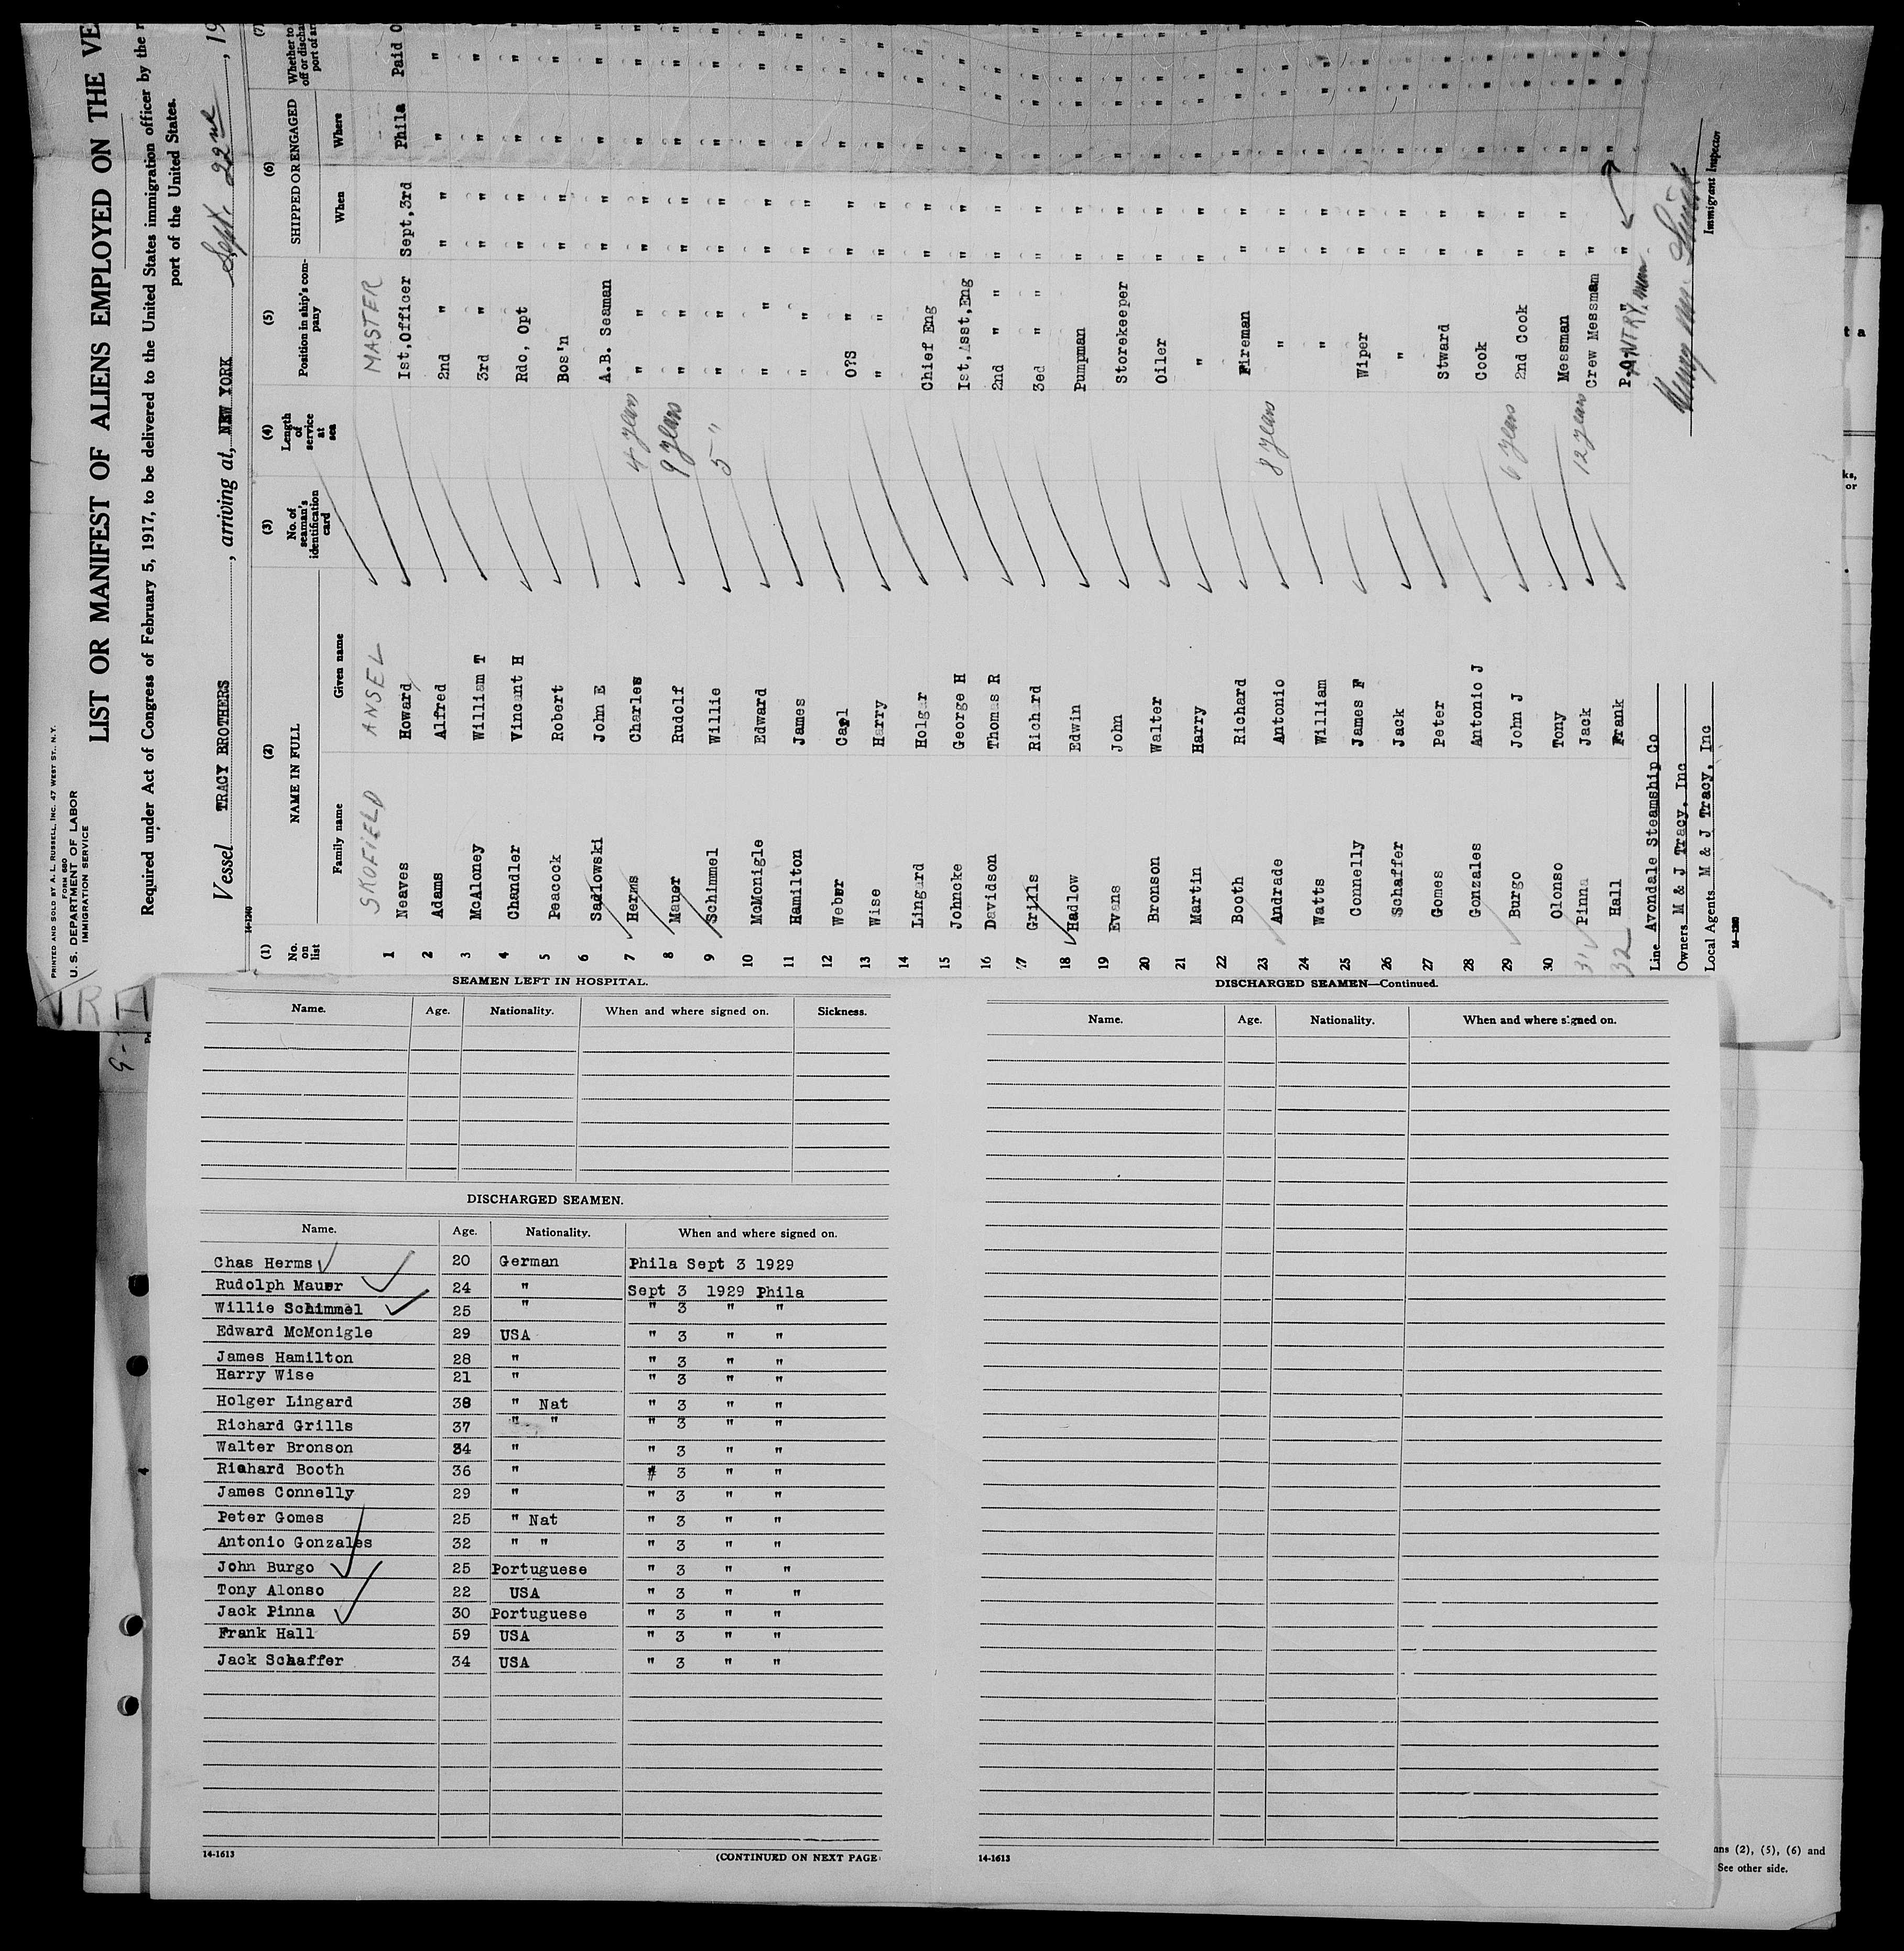 PRINTED AND SOLD BY A. L. RUSSELL, INC. 47 WEST ST., N.Y.
FORM 680
U. S. DEPARTMENT OF LABOR
IMMIGRATION SERVICE
LIST OR MANIFEST OF ALIENS EMPLOYED ON THE VE
Required under Act of Congress of February 5, 1917, to be delivered to the United States immigration officer by the
port of the United States.
Vessel TRACY BROTHERS, arriving at, NEW YORK Sept. 22nd, 19
(1) (2) (3) (4) (5) (6) (7)
No. on list NAME IN FULL No. of seaman's identification card Length of service at sea Position in ship's company SHIPPED OR ENGAGED Whether to
Family name Given name When Where
SKOFIELD ANSEL MASTER
1 Neaves Howard 1st,Officer Sept,3rd Phila Paid O
2 Adams Alfred 2nd " " " " "
3 McAloney William T 3rd " " " " "
4 Chandler Vincent H Rdo, Opt " " " "
5 Peacock Robert Bos'n " " " "
6 Sadlowski John E A.B. Seaman " " " "
7 Herms Charles 4 years " " " " "
8 Mauer Rudolf 9 years " " " " "
9 Schimmel Willie 5 " " " " " "
10 McMonigle Edward " " " " "
11 Hamilton James " " " " "
12 Weber Carl O?S " " " "
13 Wise Harry " " " " "
14 Lingard Holgar Chief Eng " " " "
15 Johncke George H 1st,Asst,Eng " " " "
16 Davidson Thomas R 2nd " " " " " "
17 Grills Richard 3ed " " " " " "
18 Hadlow Edwin Pumpman " " " "
19 Evans John Storekeeper " " " "
20 Bronson Walter Oiler " " " "
21 Martin Harry " " " " "
22 Booth Richard Fireman " " " "
23 Andrade Antonio 8 years " " " " "
24 Watts William " " " " "
25 Connelly James F Wiper " " " "
26 Schaffer Jack " " " " "
27 Gomes Peter Stward " " " "
28 Gonzales Antonio J Cook " " " "
29 Burgo John J 6 years 2nd Cook " " " "
30 Olonso Tony Messman " " " "
31 Pinna Jack 12 years Crew Messman " " " "
32 Hall Frank PANTRY man " " "
Line Avondale Steamship Co
Owners M & J Tracy, Inc
Local Agents M & J Tracy, Inc
Immigrant Inspector
SEAMEN LEFT IN HOSPITAL.
Name. Age. Nationality. When and where signed on. Sickness.
DISCHARGED SEAMEN.
Name. Age. Nationality. When and where signed on.
Chas Herms 20 German Phila Sept 3 1929
Rudolph Mauer 24 " Sept 3 1929 Phila
Willie Schimmel 25 " " 3 " "
Edward McMonigle 29 USA " 3 " "
James Hamilton 28 " " 3 " "
Harry Wise 21 " " 3 " "
Holger Lingard 38 " Nat " 3 " "
Richard Grills 37 " " " 3 " "
Walter Bronson 34 " " 3 " "
Richard Booth 36 " " 3 " "
James Connelly 29 " " 3 " "
Peter Gomes 25 " Nat " 3 " "
Antonio Gonzales 32 " " " 3 " "
John Burgo 25 Portuguese " 3 " "
Tony Alonso 22 USA " 3 " "
Jack Pinna 30 Portuguese " 3 " "
Frank Hall 59 USA " 3 " "
Jack Schaffer 34 USA " 3 " "
14-1613 (CONTINUED ON NEXT PAGE
DISCHARGED SEAMEN—Continued.
Name. Age. Nationality. When and where signed on.
14-1613
ns (2), (5), (6) and
See other side.